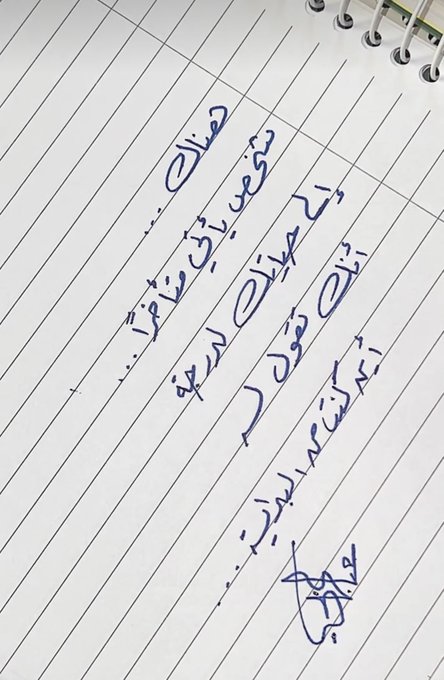 هناك ...
شخص يأتي متأخراً ...
إلى حياتك لدرجة
أنك تقول له
أين كنت من البداية ...